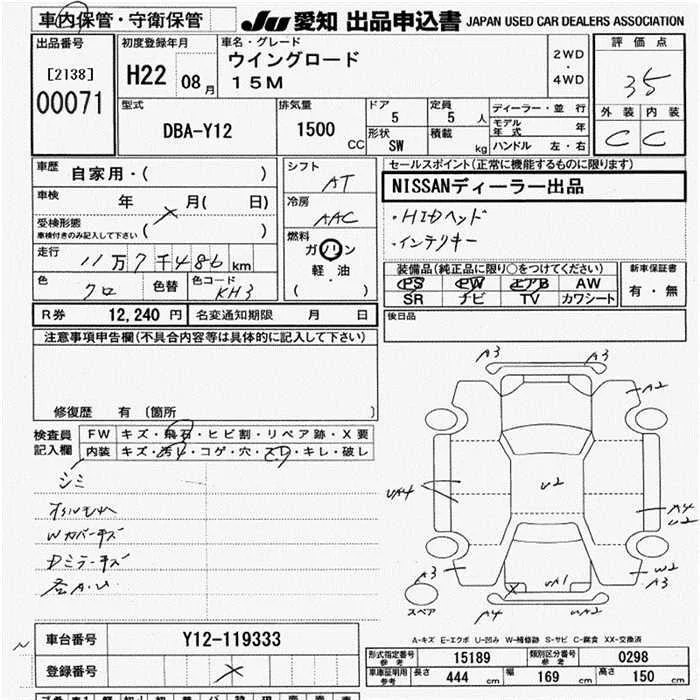 車内保管・守衛保管
JU 愛知 出品申込書 JAPAN USED CAR DEALERS ASSOCIATION
出品番号
[2138]
00071
初度登録年月
H22 08月
車名・グレード
ウイングロード
15M
2WD
・
4WD
評価点
35
外装 内装
C C
型式
DBA-Y12
排気量
1500 CC
ドア
5
定員
5 人
形状
SW
積載
kg
ディーラー・並行
モデル年式 年
ハンドル 左・右
車歴
自家用・( )
車検
年 月( 日)
受検形態
車検付きのみ記入して下さい ( )
走行
11万7千486km
色
クロ
色替
色コード
KH3
シフト
AT
冷房
AAC
燃料
ガソリン
軽・油
( ・ )
セールスポイント(正常に機能するものに限ります)
NISSANディーラー出品
・HIDヘッド
・インテリキー
装備品(純正品に限り○をつけてください)
PS PW エアB AW
SR ナビ TV カワシート
新車保証書
有・無
後日品
R券 12,240円
名変通知期限 月 日
注意事項申告欄(不具合内容等は具体的に記入して下さい)
修復歴 有 〔箇所 〕
検査員
記入欄
FW キズ・飛石・ヒビ割・リペア跡・X要
内装 キズ・汚レ・コゲ・穴・スレ・キレ・破レ
シミ
Wカバーキズ
A3
A3
A2
UA4
U2
A4
U2
A3
W2
A3
UA1
A4
スペア
A-キズ E-エクボ U-凹み W-補修跡 S-サビ C-腐食 XX-交換済
車台番号
Y12-119333
登録番号
形式指定番号
参考
15189
類別区分番号
参考
0298
車庫証明用
参考
長さ 444 cm
幅 169 cm
高さ 150 cm